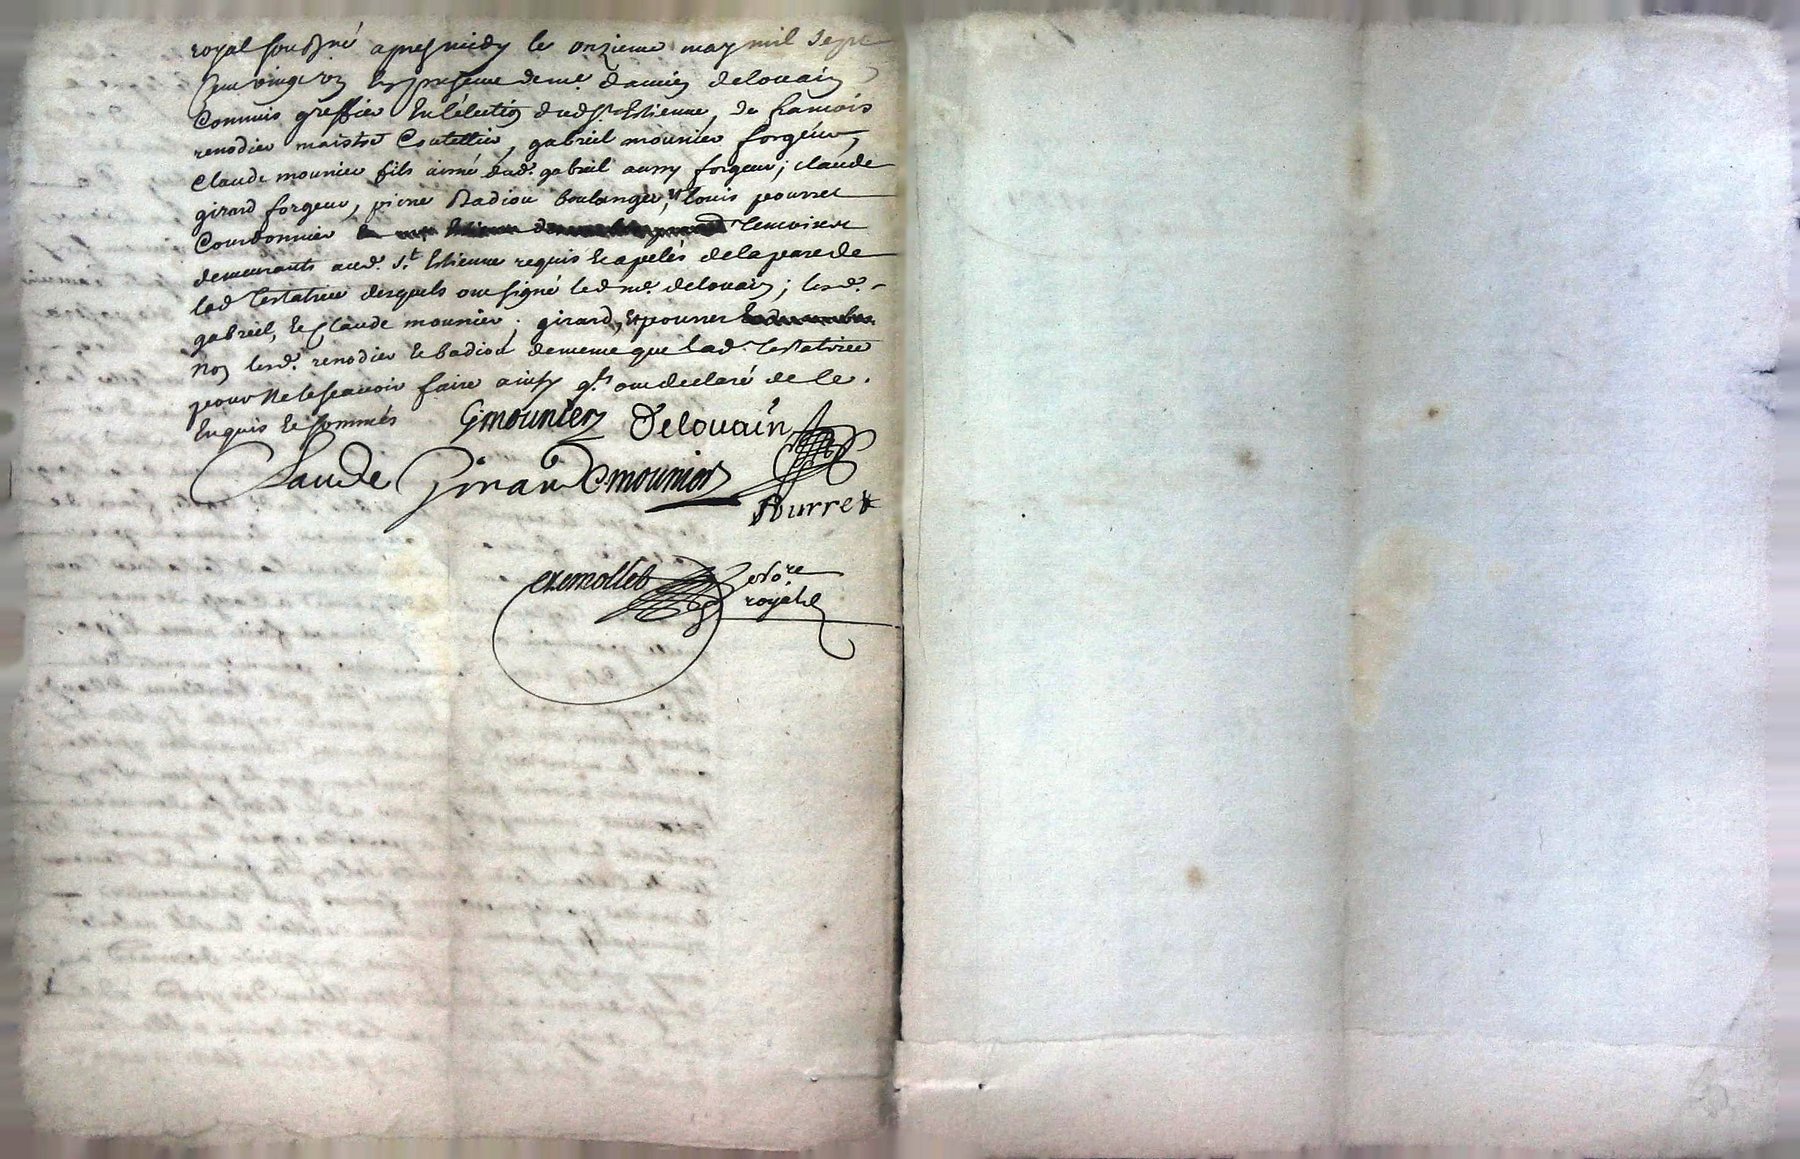 royal soussigné apres midy le onzieme may mil sept
cens vingt En presence de me. damien delouain
Commis greffier En lélection dud. st. Estienne, de francois
renodier maistre Coutellier, gabriel mounier forgeur,
Claude mounier fils aimé dud. gabriel aussy forgeur; claude
girard forgeur, pierre Badiou boulanger, & louis pourret
Courdonnier temoins
demeurants aud. St. Estienne requis & apelés de la part de
lad testatrice desquels ont signé led me. delouain; lesd.
gabriel, & Claude mounier; girard, & pourret
non lesd. renodier & badiou de meme que lad. testatrice
pour ne le scavoir faire ainsy qls ont declaré de ce.
Enquis & sommés Gmounier Delouain
Claude Girard Cmounier
Pourret
notre
royal